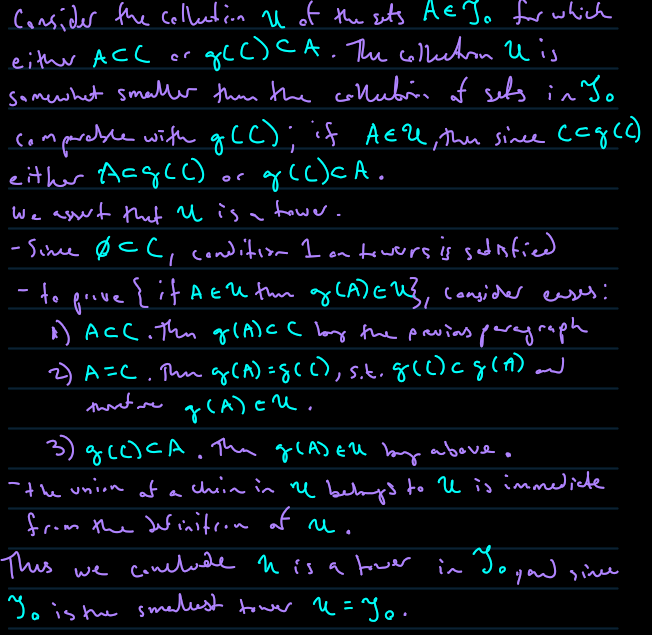 Consider the collection 𝒰 of the sets A ∈ 𝒥₀ for which
either A ⊂ C or g(C) ⊂ A. The collection 𝒰 is
somewhat smaller than the collection of sets in 𝒥₀
comparable with g(C); if A ∈ 𝒰, then since C ⊂ g(C)
either A ⊂ g(C) or g(C) ⊂ A.
We assert that 𝒰 is a tower.
- Since ∅ ⊂ C, condition 1 on towers is satisfied
- to prove { if A ∈ 𝒰 then g(A) ∈ 𝒰}, consider cases:
1) A ⊂ C. Then g(A) ⊂ C by the previous paragraph
2) A = C. Then g(A) = g(C), s.t. g(C) ⊂ g(A) and
therefore g(A) ∈ 𝒰.
3) g(C) ⊂ A. Then g(A) ∈ 𝒰 by above.
- the union of a chain in 𝒰 belongs to 𝒰 is immediate
from the definition of 𝒰.
Thus we conclude 𝒰 is a tower in 𝒥₀, and since
𝒥₀ is the smallest tower 𝒰 = 𝒥₀.